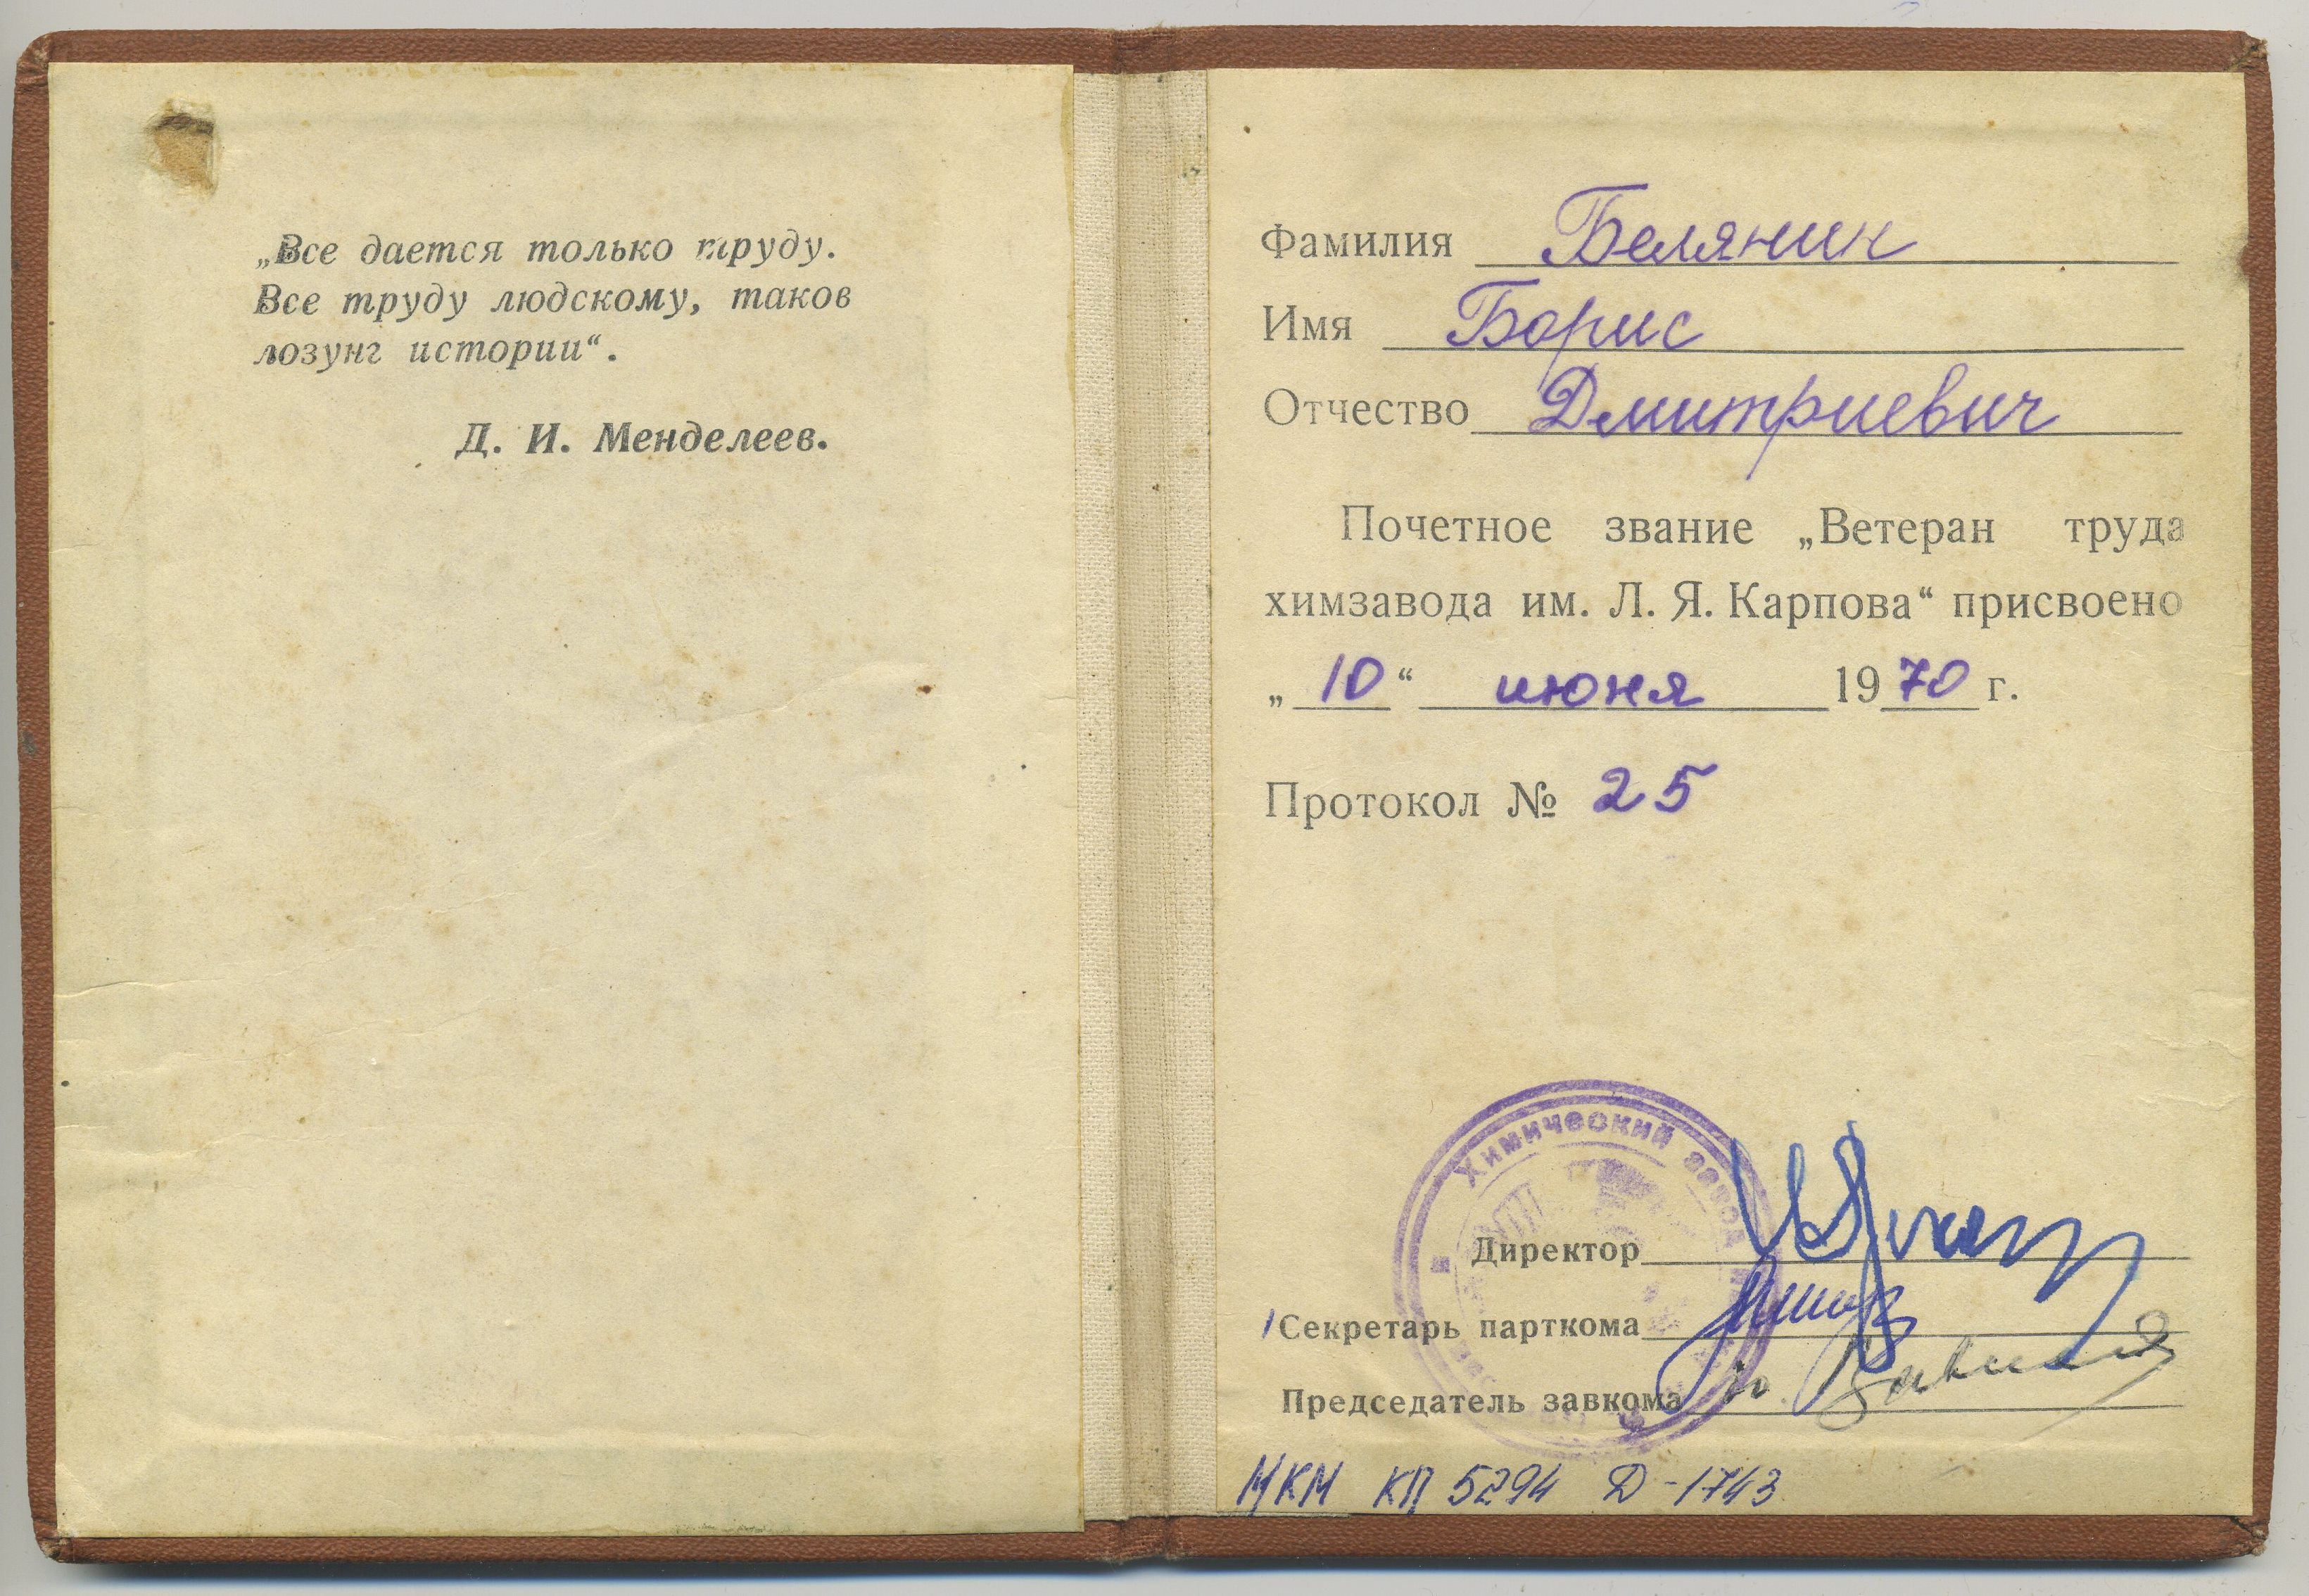 „Все дается только труду.
Все труду людскому, таков
лозунг истории“.
Д. И. Менделеев.
Фамилия Белянин
Имя Борис
Отчество Дмитриевич
Почетное звание „Ветеран труда
химзавода им. Л. Я. Карпова“ присвоено
„10“ июня 1970 г.
Протокол № 25
Химический завод
Директор
Секретарь парткома
Председатель завкома
МКМ КП 5294 Д-1743